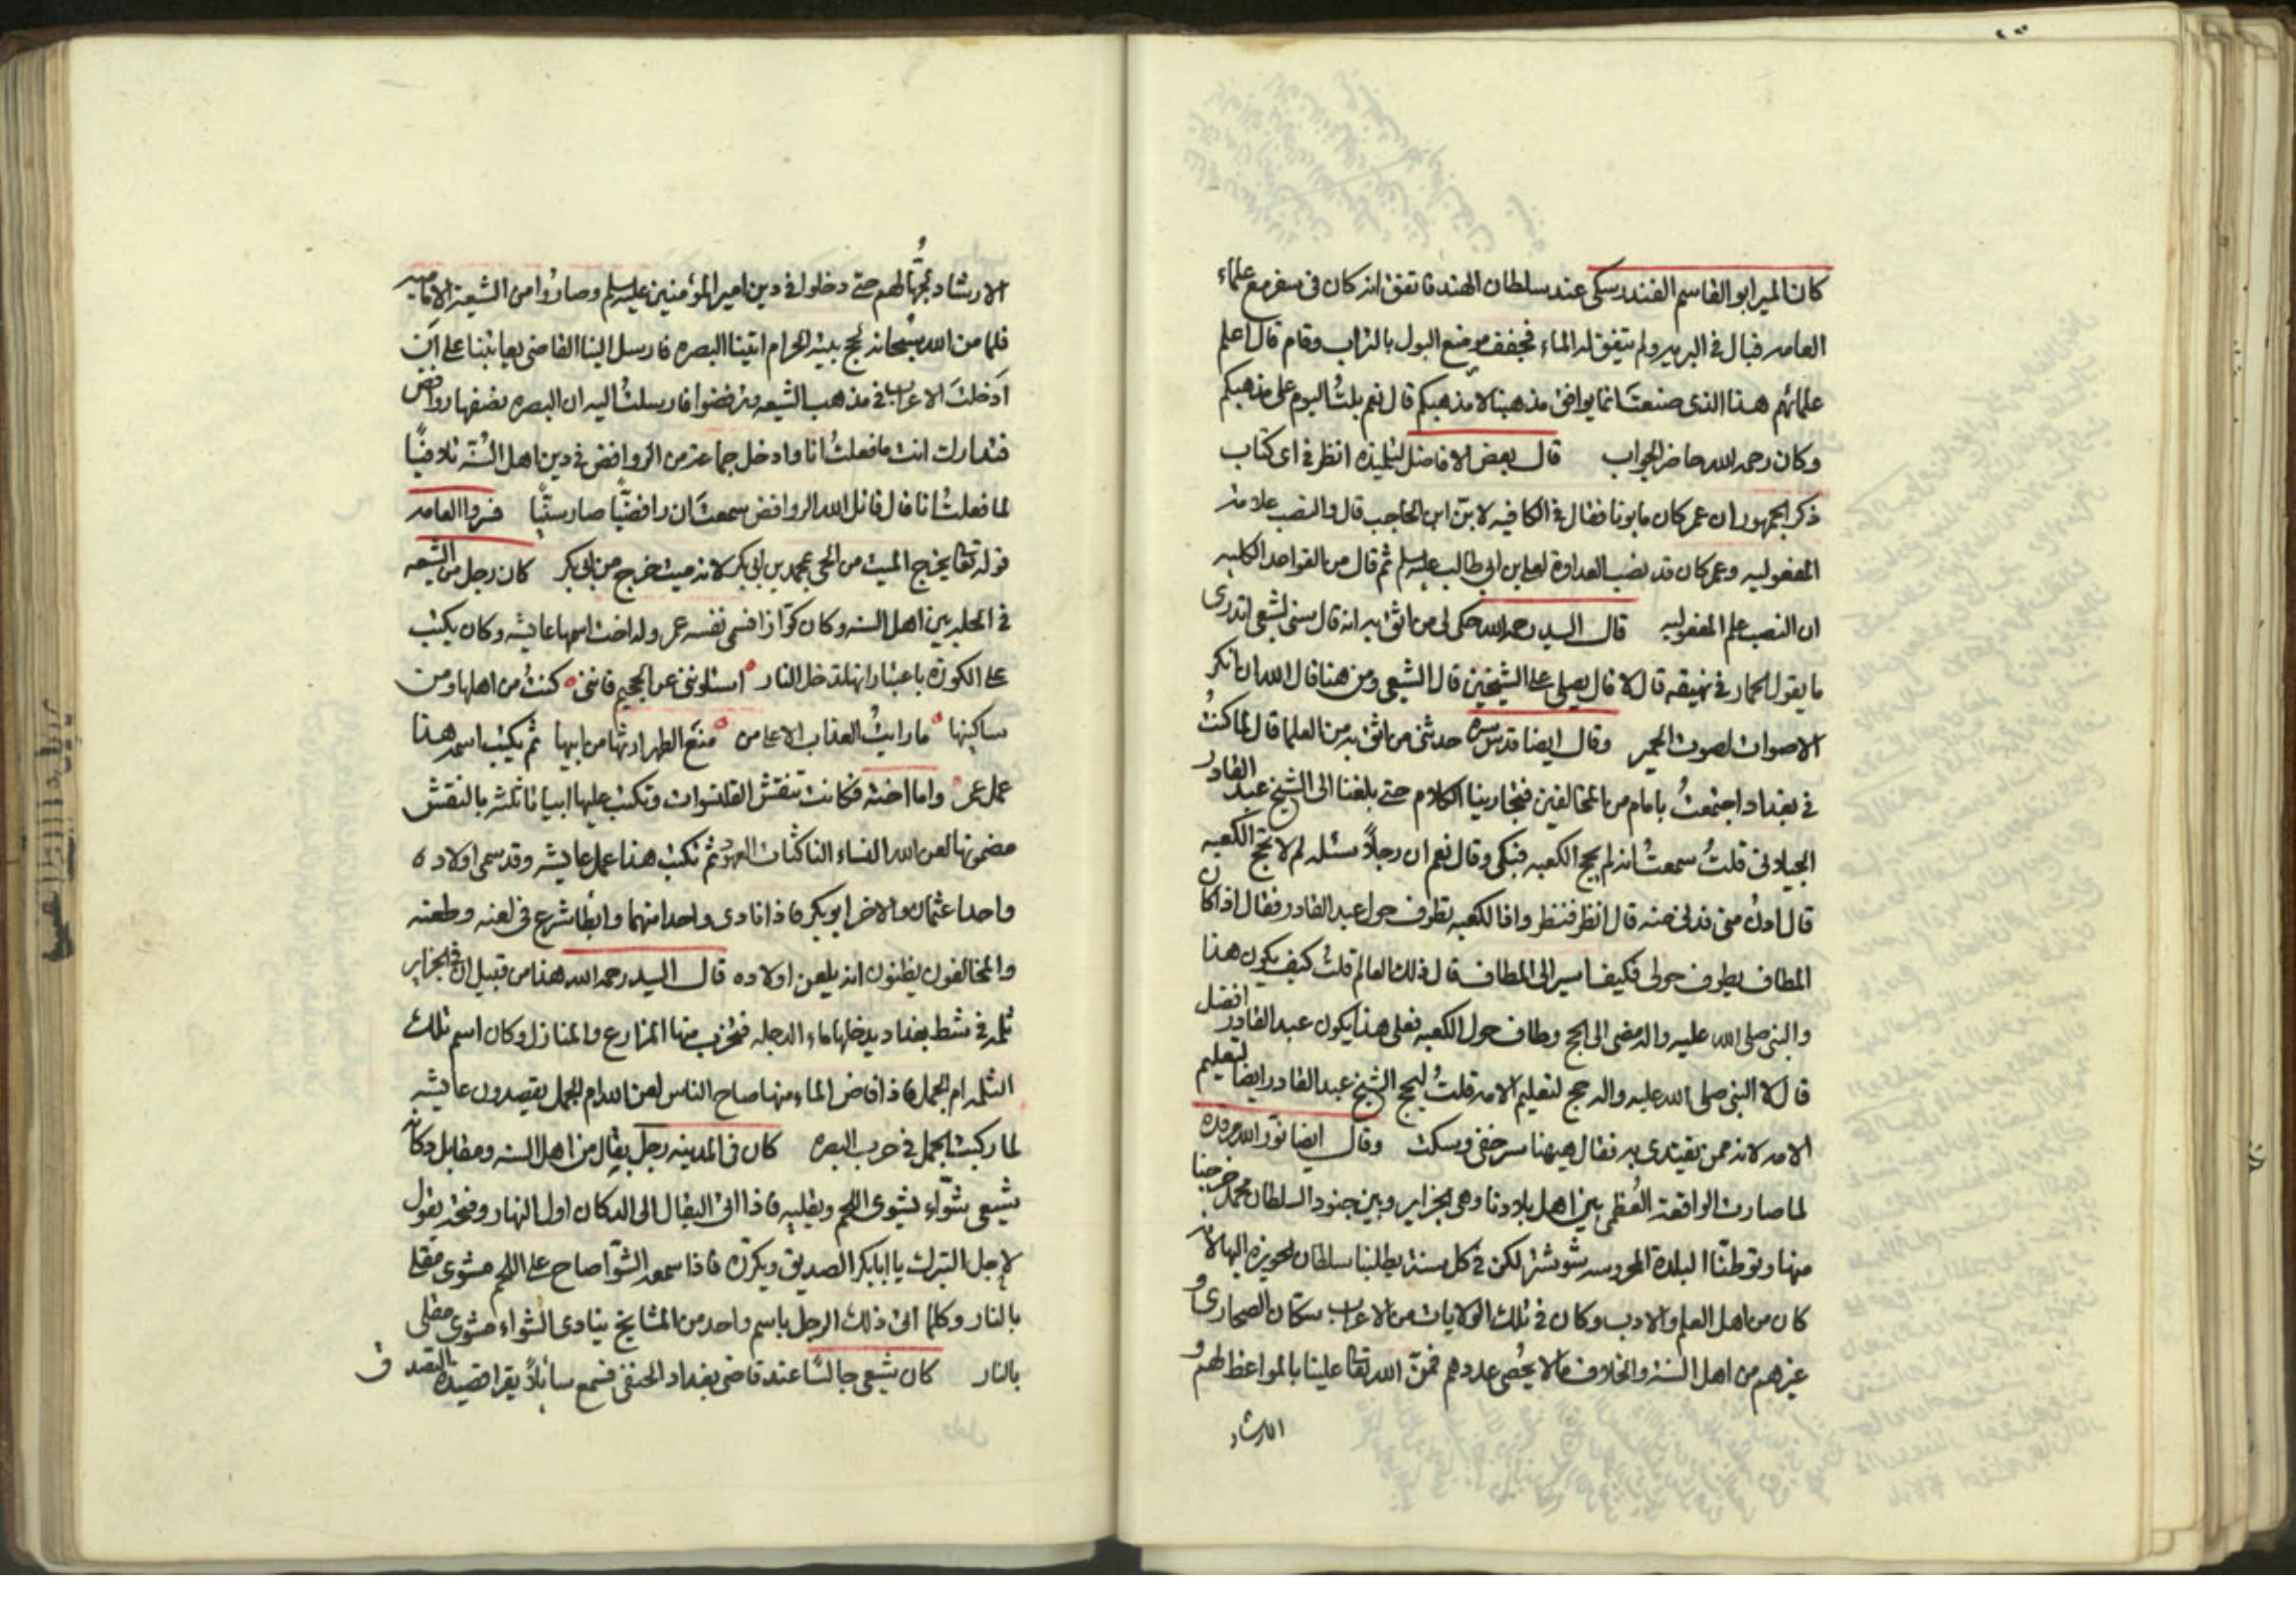 كان المير ابو القاسم الفندرسكي عند سلطان الهند فاتفق انه كان في سفر مع علماء
العامه فبال في البريه ولم يتفق له الماء فجفف موضع البول بالتراب وقام قال اعلم
علمائهم هذا الذي صنعت انما يوافق مذهبنا لا مذهبكم قال نعم بلت اليوم على مذهبكم
وكان رحمه الله حاضر الجواب قال بعض الافاضل لتلميذه انظر في اي كتاب
ذكر الجمهور ان عمر كان مابونا فقال في الكافيه لابن الحاجب قال والنصب علامة
المفعوليه وعمر كان قد نصب العداوة لعلي بن ابي طالب عليه سلم ثم قال من القواعد الكليه
ان النصب علم المفعوليه قال السيد رحمه الله حكى لي من اثق به انه قال سني لشيعي اتدري
ما يقول الحمار في نهيقه قال لا قال يصلي على الشيخين قال الشيعي ومن هنا قال الله ان انكر
الاصوات لصوت الحمير وقال ايضا قدس سره حدثني من اثق به من العلما قال لما كنت
في بغداد اجتمعت بامام من المخالفين فتجارينا الكلام حتى بلغنا الى الشيخ عبد القادر
الجيلاني قلت سمعت انه لم يحج الكعبه فبكى وقال نعم ان رجلا سئله لم لا تحج الكعبه
قال ادن مني فدنى منه قال انظر فنظر واذا الكعبه تطوف حول عبد القادر فقال اذا كان
المطاف يطوف حولي فكيف اسير الى المطاف قال ذلك العالم قلت كيف يكون هذا
والنبي صلى الله عليه واله مضى الى الحج وطاف حول الكعبه فعلى هذا يكون عبد القادر افضل
قال لا النبي صلى الله عليه واله حج لتعليم الامه قلت ليحج الشيخ عبد القادر ايضا لتعليم
الامه لانه ممن يقتدى به فقال هيهنا سر خفي وسكت وقال ايضا نور الله مرقده
لما صارت الواقعة العظمى بين اهل بلادنا وهي الجزاير وبين جنود السلطان محمد خرجنا
منها وتوطنا البلدة المحروسه شوشتر لكن في كل سنة يطلبنا سلطان الحويزه اليها لانه
كان من اهل العلم والادب وكان في تلك الولايات من الاعراب سكان الصحارى و
غيرهم من اهل السنة والخلاف ما لا يحصى عددهم فمن الله تعا علينا بالمواعظ لهم و
الارشاد
الارشاد لجهالهم حتى دخلوا في دين امير المؤمنين عليه سلم وصاروا من الشيعة الاماميه
فلما من الله سبحانه بحج بيته الحرام اتينا البصره فارسل الينا القاضي يعاتبنا على انك
ادخلت الاعراب في مذهب الشيعه وترفضوا فارسلت اليه ان البصره نصفها روافض
فتدارك انت ما فعلت انا وادخل جماعة من الروافض في دين اهل السنة تلافيا
لما فعلت انا قال قاتل الله الروافض سمعت ان رافضيا صار سنيا فسروا العامه
قوله تعا يخرج الميت من الحي بمحمد بن ابي بكر لانه ميت خرج من ابي بكر كان رجل من الشيعه
في المحله بين اهل السنه وكان كوازا فسمى نفسه عمر وله اخت اسمها عايشه وكان يكتب
على الكوزه باعتبار انها تدخل النار اسئلوني عن الجحيم فاني كنت من اهلها ومن
ساكنيها ما رايت العذاب الا على من منع الطهر ارثها من ابيها ثم يكتب اسمه هذا
عمل عمر واما اخته فكانت تنقش القلنسوات وتكتب عليها ابياتا ثلثه بالنقش
مضمونها لعن الله النساء الناكثات العهود ثم تكتب هذا عمل عايشه وقد سمى اولاده
واحدا عثمان والاخر ابو بكر فاذا نادى واحدا منهما وابطا شرع في لعنه وطعنه
والمخالفون يظنون انه يلعن اولاده قال السيد رحمه الله هذا من قبيل ان في الجزاير
ثلمه في شط بغداد يدخلها ماء الدجله فتخرب منها المزارع والمنازل وكان اسم تلك
الثلمه ام الجمل فاذا فاض الماء منها صاح الناس لعن الله ام الجمل يقصدون عايشه
لما ركبت الجمل في حرب البصره كان في المدينه رجل بقال من اهل السنه ومقابل دكانه
شيعي شواء يشوى اللحم ويقليه فاذا اتى البقال الى الدكان اول النهار وفتحه يقول
لاجل التبرك يا ابا بكر الصديق ويكرره فاذا سمعه الشوا صاح على اللحم مشوي مقلي
بالنار وكلما اتى ذلك الرجل باسم واحد من المشايخ ينادى الشواء مشوي مقلي
بالنار كان شيعي جالسا عند قاضي بغداد الحنفي فسمع سائلا يقرا قصيدة